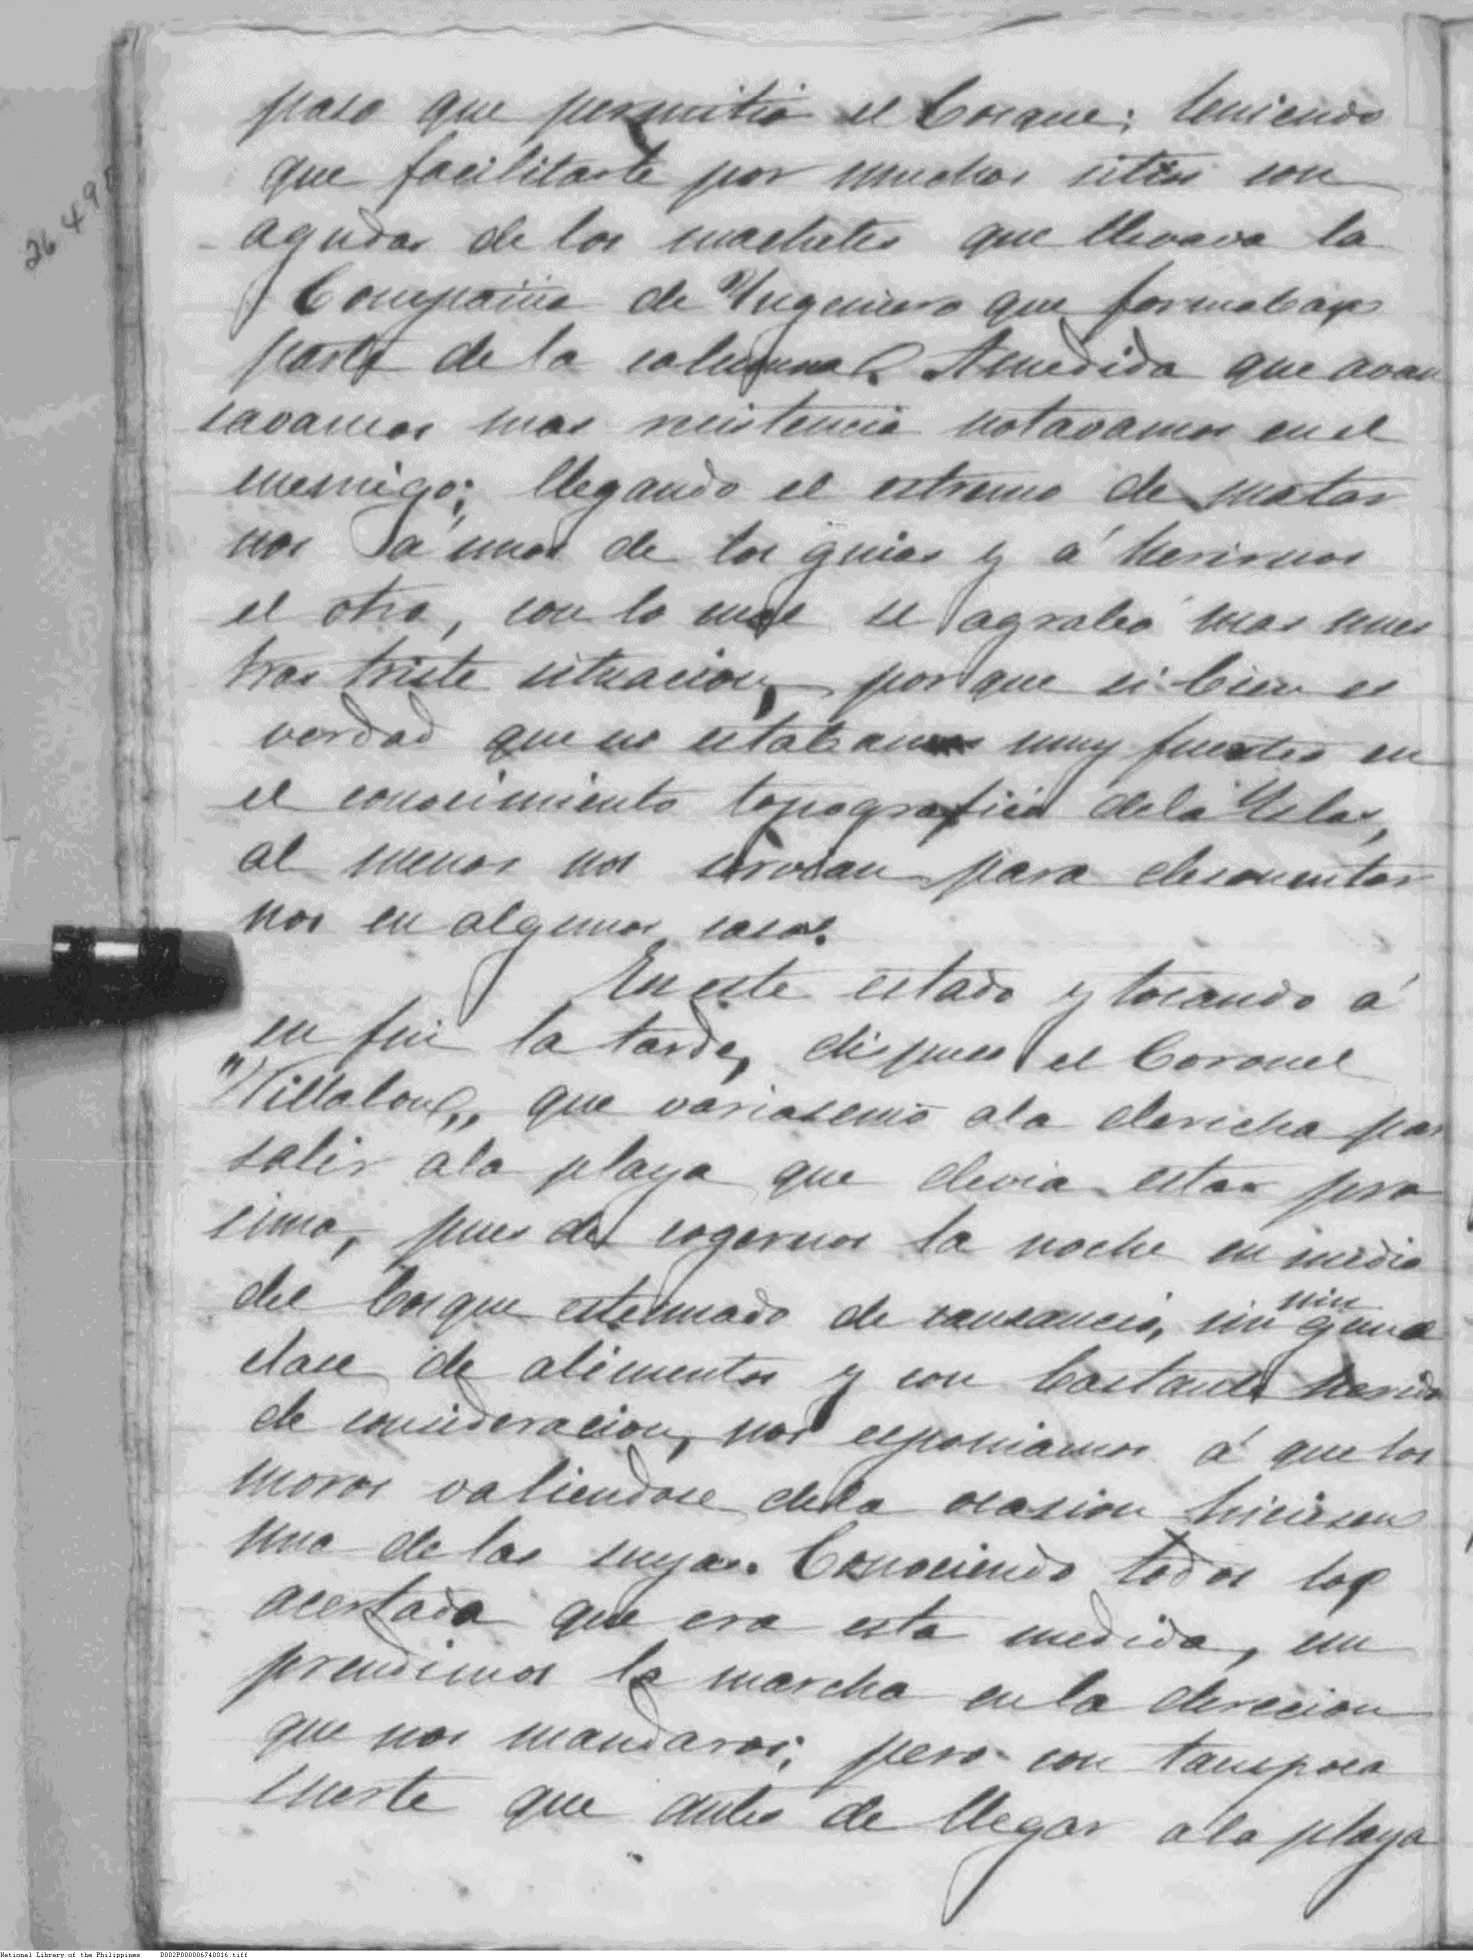 paso que permitia el bosque; teniendo
que facilitarse por muchos sitios con
agudas de los machetes que llevava la
Compañia de Yngenieros que formaban
parte de la columna. Amedida que avan
savamos mas resistencia notavamos en el
enemigo; llegando el estremo de matar
nos á unos de los guias y á herirnos
el otro, con lo cual se agrabó mas nues
tras triste situacion, porque si bien es
verdad que no estabamos muy fuertes en
el conocimiento topografico dela Yslas,
al menos nos servian para
nos en algunos casos.
En este estado y tocando á
su fin la tarde, dispuso el Coronel
"Villalon,, que variasemos ala derecha par
salir ala playa que devia estar pro
sima, pues de cogernos la noche en medio
del bosque estenuado de cansancio, sin ninguna
clase de alimentos y con bastante herido
de consideracion, nos esponiamos á que los
moros valiendose dela ocasion hiciesen
una de las suyas. Conociendo todos lo
acertada que era esta medida, em
prendimos la marcha en la direccion
que nos mandaros; pero con tan poca
suerte que antes de llegar ala playa
26490
National Library of the Philippines D002P000006740016.tiff